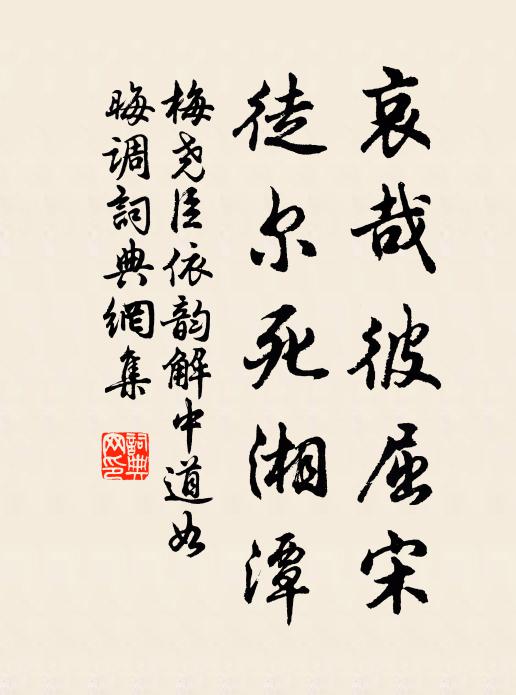 哀哉彼屈宋
徒尔死湘潭
梅尧臣依韵解中道如
晦调詞典網集
詞典网印